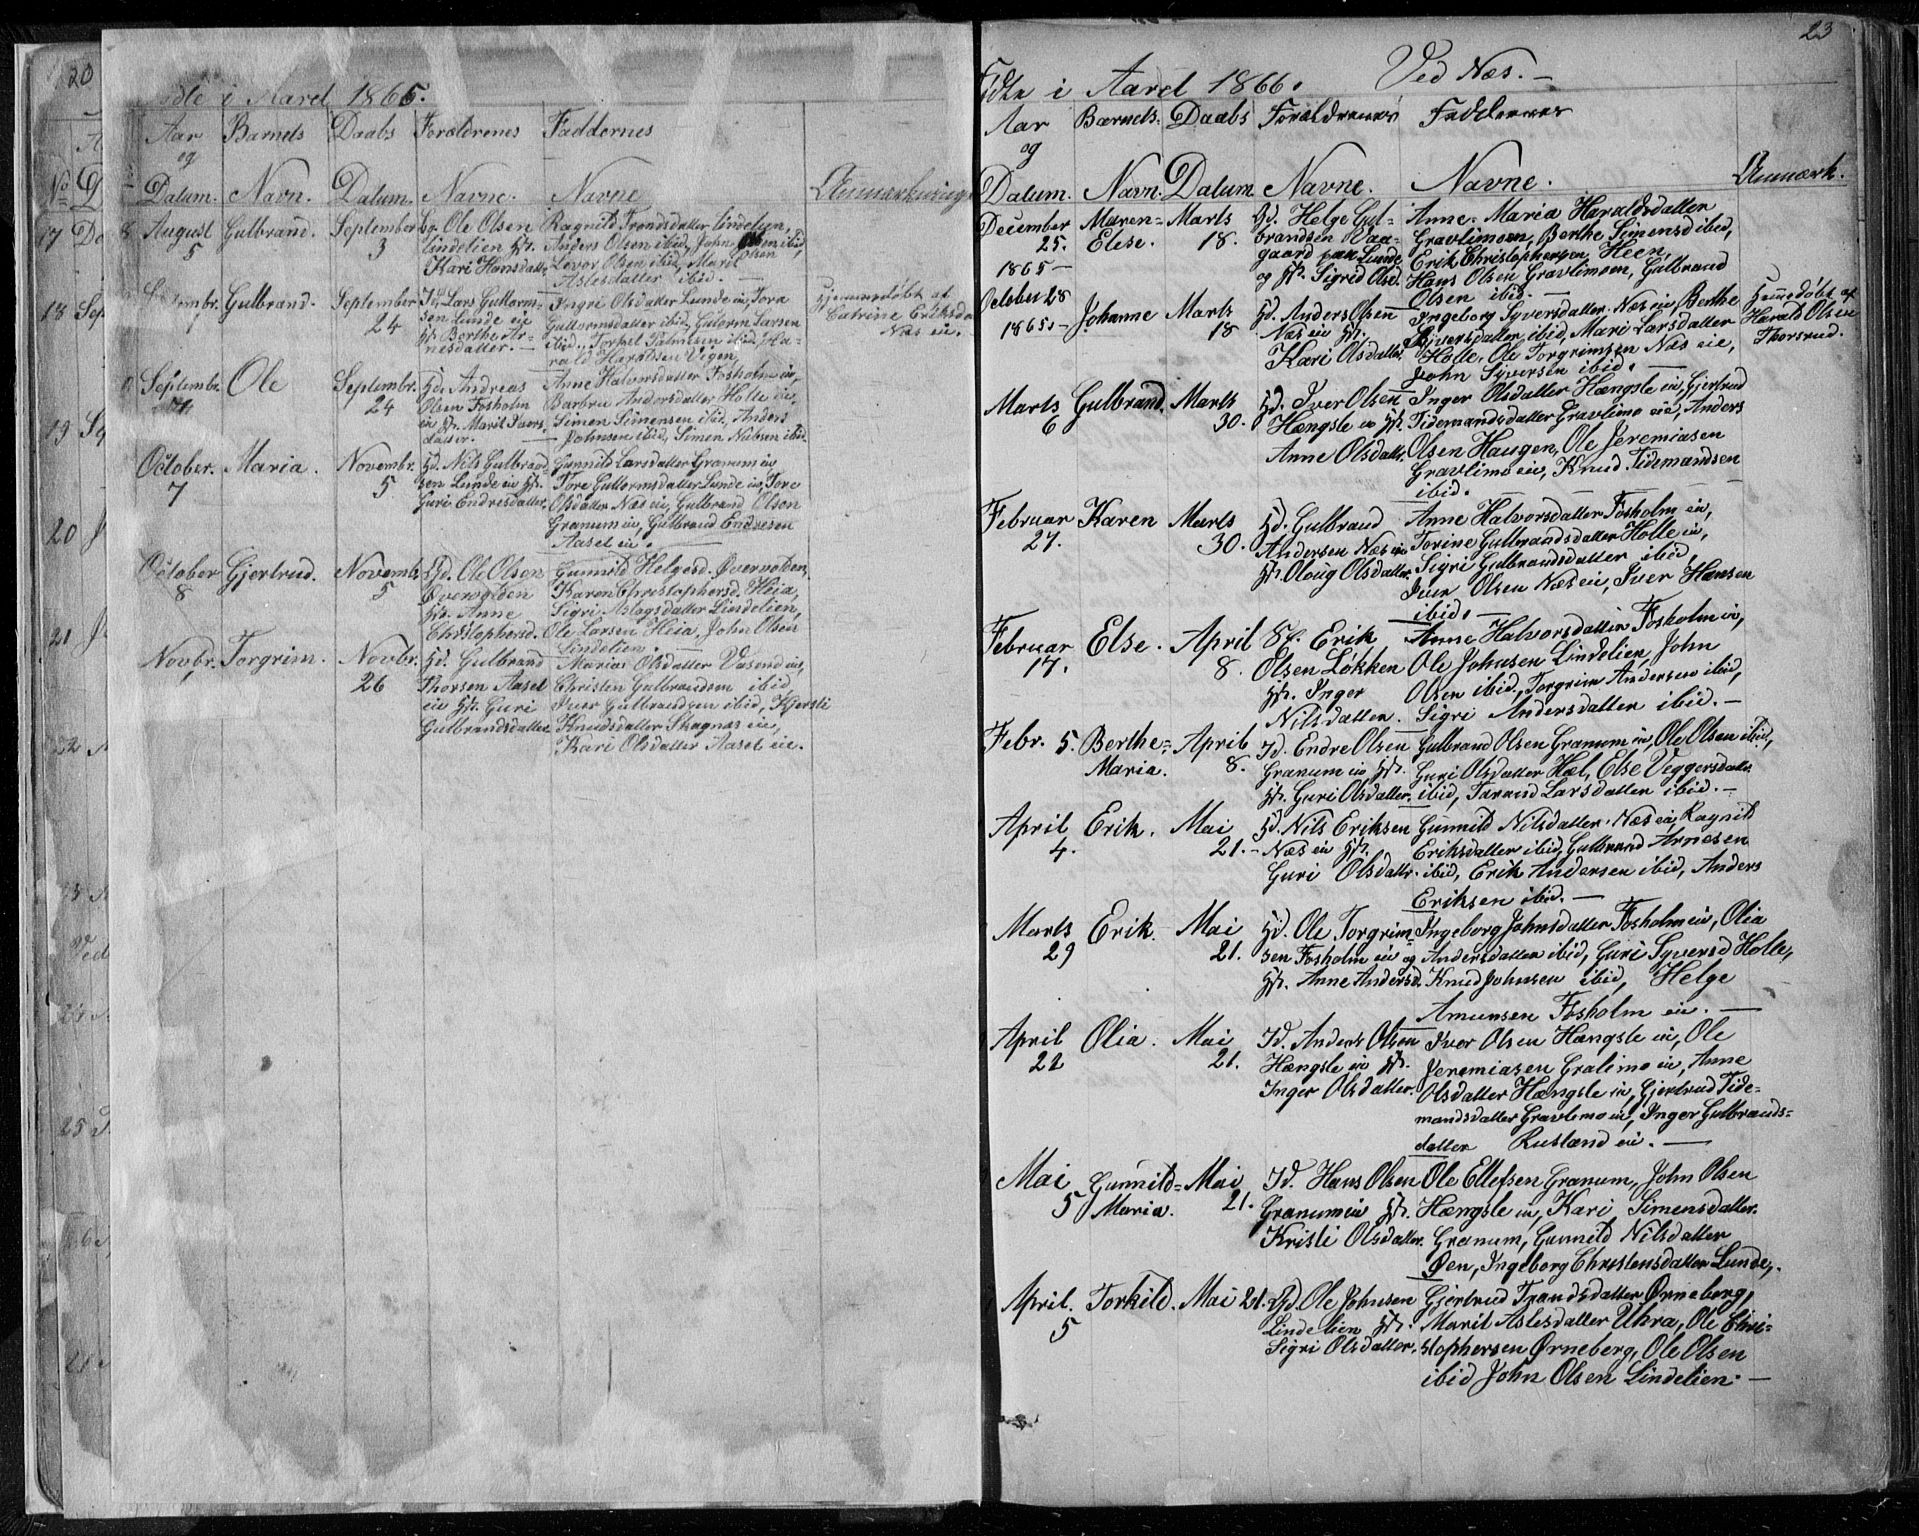 Fødte i Aaret 1865.
Aar Barnets Daabs Forældrenes Faddernes
og
Datum. Navn. Datum. Navne. Navne Anmærkninge
August Gulbrand. September
5 3
Ole Olsen
Lindelien
Kari Hansdatter
Ragnild Trondsdatter Lindelien,
Anders Olsen ibid, John Olsen ibid,
Levor Olsen ibid, Marit Olsen
Aslesdatter ibid. —
Gulbrand. September
24
Lars Guttorm-
sen Lunde eie
Berthe Ar-
nesdatter. —
Ingri Olsdatter Lunde eie, Tora
Guttormsdatter ibid, Gutorm Larsen
ibid, Torkel Palmesen ibid, Ha-
rald Haraldsen Vigen,
Hjemmedøbt af
Catrine Eriksda
Næs eie.
Septembr. Ole Septembr.
24
Andreas
Olsen Fosholm
eie Marit Ivers-
datter. —
Anne Halvorsdatter Fosholm eie,
Barbru Andersdatter Holte eie,
Simen Simensen ibid, Anders
Johnsen ibid, Simen Nubsen ibid.
October. Maria. Novembr.
7 5
Nils Gulbrand-
sen Lunde eie
Guri Endresdatter.
Gunnild Larsdatter Granum eie
Tore Guttormsdatter Lunde eie, Tore
Olsdatter Næs eie, Gulbrand Olson
Granum eie, Gulbrand Endresen
Aasel eie. —
October Gjertrud. Novemb.
8 5
Ole Olsen
Øvervolden
Anne
Christophersd.
Gunnild Helgesd. Øvervolden,
Karen Christophersd. Heia,
Sigri Aslagsdatter Lindelien,
Ole Larsen Heia, John Olsen
Lindelien. —
Novbr. Torgrim. Novbr.
26
Gulbrand
Thorsen Aasel
eie Guri
Gulbrandsdatter
Maria Olsdatter Vasend eie,
Christen Gulbrandsen ibid,
Iver Gulbrandsen ibid, Kjersti
Knudsdatter Skagnæs eie,
Kari Olsdatter Aasel eie.
23
Fødte i Aaret 1866. Ved Næs. —
Aar Barnets Daabs Forældrenes Faddernes
og
Datum. Navn. Datum Navne. Navne. Anmærk.
December Maren= Marts
25. Elese. 18.
1865 —
Helge Gul-
brandsen Vaa-
gaard paa Lunde
og Sigrid Olsd.
Anne Maria Haraldsdatter
Gravlimoen, Berthe Simensd ibid,
Erik Christophersen Heen,
Hans Olsen Gravlimoen, Gulbrand
Olsen ibid. —
October 28 Johanne Marts
1865. — 18
Anders Olsen
Næs eie
Kari Olsdatter.
Ingeborg Syversdatter Næs eie, Berthe
Syversdatter ibid, Mari Larsdatter
Holte, Ole Torgrimsen Næs eie,
John Syversen ibid. —
Hjemmedøbt af
Harald Olsen
Thorsrud.
Marts Gulbrand. Marts
6 30.
Iver Olsen
Hængsle eie
Anne Olsdattr.
Inger Olsdatter Hængsle eie, Gjertrud
Tidemandsdatter Gravlimo eie, Anders
Olsen Haugen, Ole Jeremiasen
Gravlimo eie, Knud Tidemandsen
ibid.
Februar Karen Marts
27. 30.
Gulbrand
Andersen Næs eie
Oloug Olsdatter.
Anne Halvorsdatter Fosholm eie,
Torine Gulbrandsdatter Holte eie,
Sigri Gulbrandsdatter ibid,
Iver Olsen Næs eie, Iver Hansen
ibid. —
Februar Else. April
17. 8.
Erik
Olsen Løkken
Inger
Nilsdatter.
Anne Halvorsdatter Fosholm eie,
Ole Johnsen Lindelien, John
Olsen ibid, Torgrim Andersen ibid,
Sigri Andersdatter ibid. —
Febr. 5. Berthe= April
Maria. 8.
Endre Olsen
Granum eie
Guri Olsdatter.
Gulbrand Olsen Granum eie, Ole Olsen ibid,
Guri Olsdatter Hæl, Else Veggersdatter
ibid, Tarand Larsdatter ibid. —
April Erik. Mai
4. 21. —
Nils Eriksen
Næs eie
Guri Olsdattr.
Gunnild Nilsdatter Næs eie, Ragnild
Eriksdatter ibid, Gulbrand Arnesen
ibid, Erik Andersen ibid, Anders
Eriksen ibid. —
Marts Erik. Mai
29 21.
Ole Torgrim-
sen Fosholm eie og
Anne Andersd.
Ingeborg Johnsdatter Fosholm eie, Olia
Andersdatter ibid, Guri Syversd Holte,
Knud Johnsen ibid, Helge
Amunsen Fosholm eie. —
April Olia. Mai
22 21.
Anders Olsen
Hængsle eie
Inger Olsdatter.
Iver Olsen Hængsle eie, Ole
Jeremiasen Gralimo eie, Anne
Olsdatter Hængsle eie, Gjertrud Tide-
mandsdatter Gravlimo eie, Inger Gulbrands-
datter Rustand eie. —
Mai Gunnild= Mai
5 Maria. 21.
Hans Olsen
Granum eie
Kristi Olsdatter.
Ole Ellefsen Granum, John Olsen
Hængsle eie, Kari Simensdatter
Granum, Gunnild Nilsdatter
Øen, Ingeborg Christensdatter Lunde,.
April. Torkild. Mai 21.
5
Ole Johnsen
Lindelien
Sigri Olsdatter.
Gjertrud Trandsdatter Ørneberg,
Marit Aslesdatter Uhra, Ole Chri-
stophersen Ørneberg, Ole Olsen
ibid John Olsen Lindelien. —